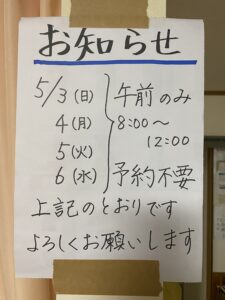 お知らせ
5/3(日)
4(月)
5(火)
6(水)
午前のみ
8:00～
12:00
予約不要
上記のとおりです
よろしくお願いします